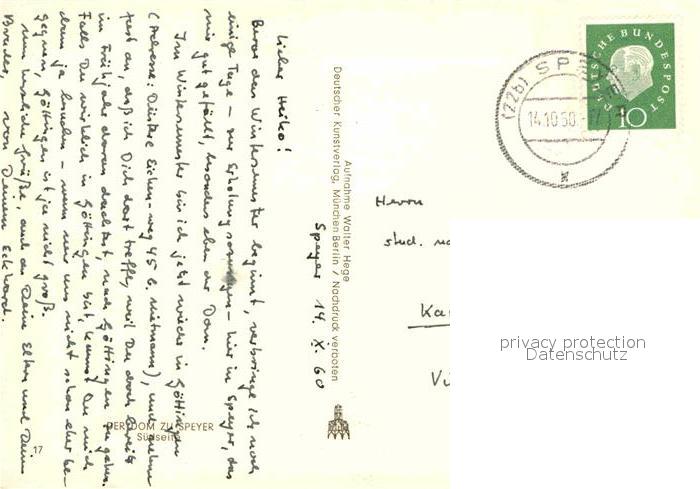 Speyer 14. X. 60
Lieber Heiko!
Bevor das Wintersemester beginnt, verbringe ich noch
einige Tage – zur Erholung sozusagen – hier in Speyer, das
mir gut gefällt, besonders eben der Dom.
Im Wintersemester bin ich jetzt wieder in Göttingen
(Adresse: Dürstse Eichen-weg 45 b. ), und nehme
fest an, daß ich Dich dort treffe, weil Du doch bereits
im Frühjahr daran dachtest, nach Göttingen zu gehen.
Falls Du wirklich in Göttingen bist, kannst Du mich
dann ja besuchen – wenn wir uns nicht schon eher be-
gegnen, Göttingen ist ja nicht groß.
Nun herzliche Grüße, auch an Deine Eltern und Deinen
Bruder, von Deinem Eckhard.
DER DOM ZU SPEYER
Südseite
17
Aufnahme Walter Hege
Deutscher Kunstverlag, München Berlin / Nachdruck verboten
DEUTSCHE BUNDESPOST
10
(22b) SP
14.10.60.-17
x
Herrn
stud.
Ka
privacy protection
Datenschutz